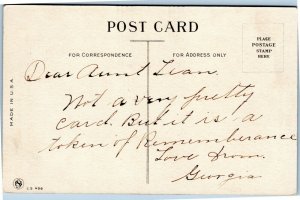 POST CARD
FOR CORRESPONDENCE
FOR ADDRESS ONLY
PLACE
POSTAGE
STAMP
HERE
MADE IN U.S.A.
Dear Aunt
Not a very pretty
card. But it is a
token of Rememberance
Love from
Georgia